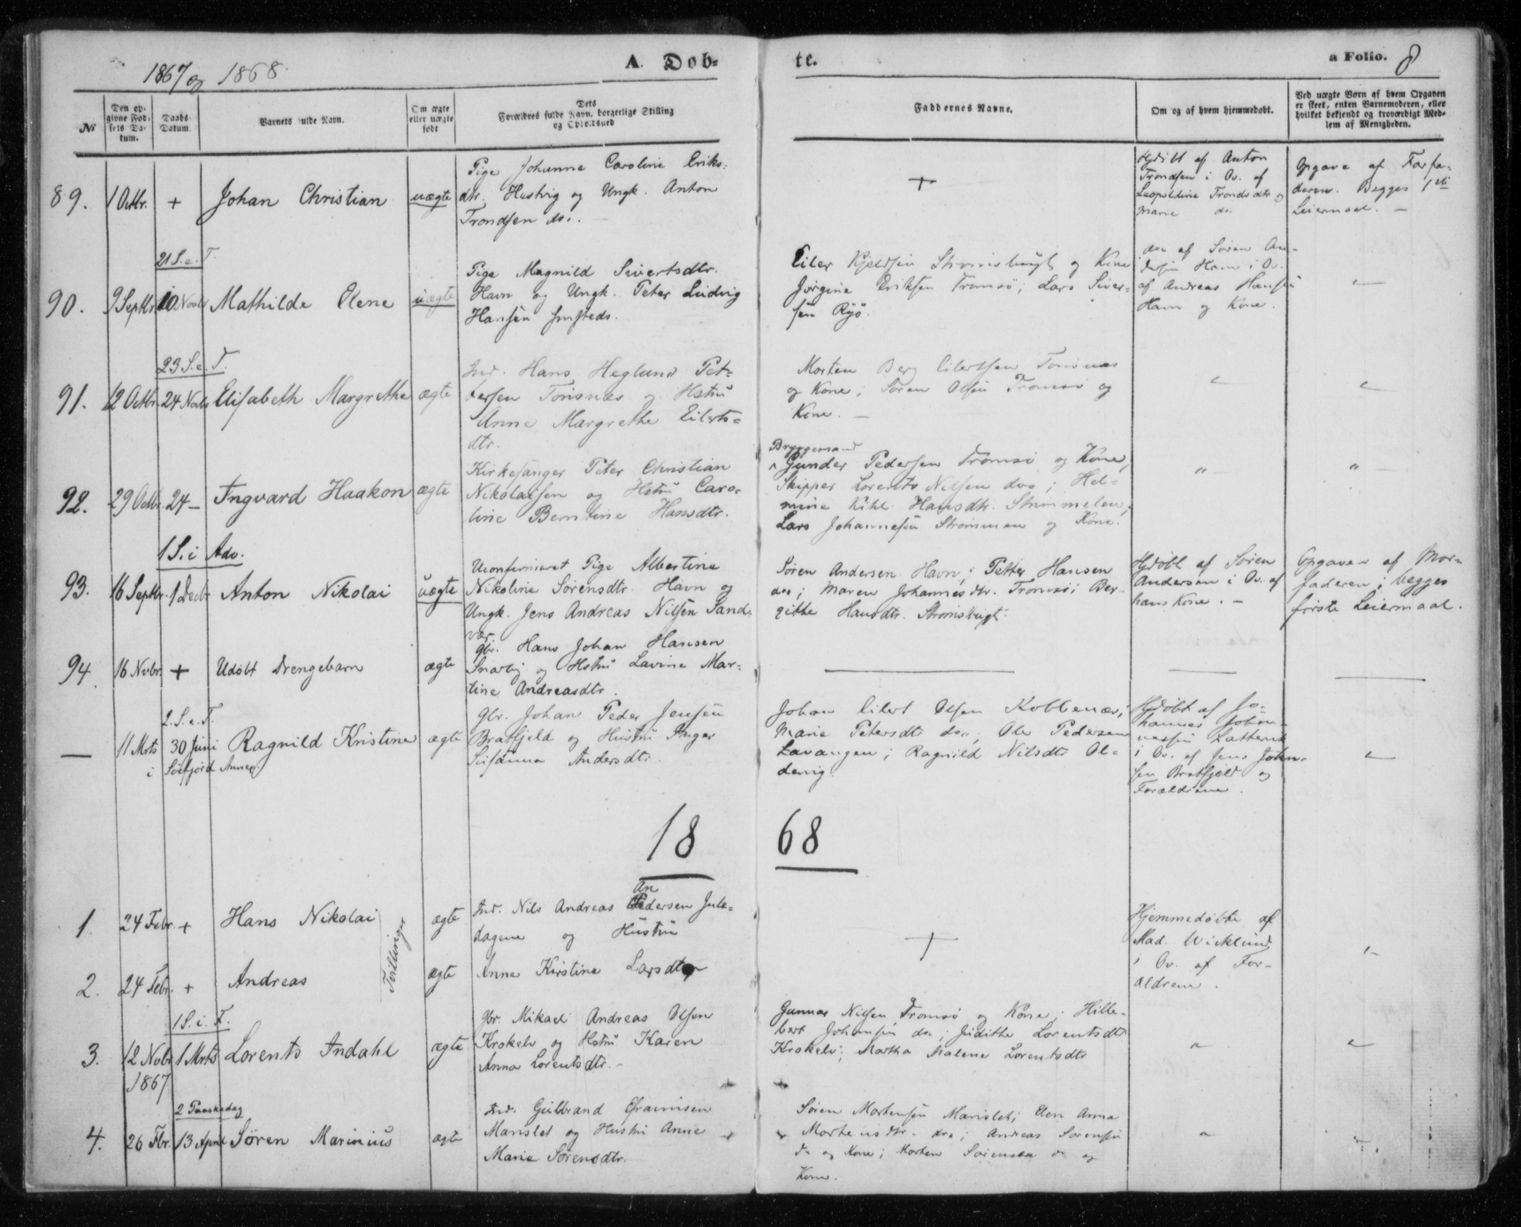 1867 og 1868.
A. Døb-
te.
a Folio. 8
№
Den op-
givne Fød-
sels Da-
tum.
Daabs-
Datum.
Barnets fulde Navn.
Om ægte
eller uægte
født
Dets
Forældres fulde Navn, borgerlige Stilling
og Opholdssted
Faddernes Navne.
Om og af hvem hjemmedøbt.
Ved uægte Børn af hvem Opgaven
er skeet, enten Barnemoderen, eller
hvilket bekjendt og troværdigt Med-
lem af Menigheden.
89. 1 Octbr. + Johan Christian uægte
Pige Johanna Caroline Eriks-
dtr. og Ungk. Anton
Trondsen ds.
+
Hjdøbt af Anton
Trondsen i Ov. af
Leopoldine Trondsdtr og
Marie ds.
Opgave af Farfa-
deren. Begges 1ste
Leiermaal. —
21 S. e. T.
90. 9 Septbr 10 Novbr Mathilde Elene uægte
Pige Magnild Sivertsdtr.
Havn og Ungk. Peter Ludvig
Hansen smsteds.
Eiler Kjeldsen Strømsbugt og Kone
Jørgine Eriksen Tromsø; Lars Siver-
sen Ryø.
do af Søren An-
dersen Havn i Ov.
af Andreas Hansen
Havn og Kone.
"
23 S. e. T.
91. 12 Octbr. 24 Novbr Elisabeth Margrethe ægte
Ind. Hans Heglund Pet-
tersen Tønsnes og Hstru
Anne Margrethe Eilerts-
dtr.
Morten Berg Eilertsen Tønsnes
og Kone; Søren Olsen Tromsø og
Kone. —
"
"
92. 29 Octbr. 24 — Ingvard Haakon ægte
Kirkesanger Peter Christian
Nikolaisen og Hstru Caro-
line Berntine Hansdtr.
Bryggemand
Gunder Pedersen Tromsø og Kone,
Skipper Lorents Nilsen dos; Hel-
mine Hansdtr.
Lars Johannesen Strømmen og Kone.
"
"
1 S. i Adv.
93. 16 Septbr. 1 Decbr Anton Nikolai uægte
Uconfirmeret Pige Albertine
Nikoline Sørensdtr. Havn og
Ungk. Jens Andreas Nilsen Sand-
vær.
Søren Andersen Havn; Petter Hansen
do; Maren Johannesdtr. Tromsø; Ber-
githe Hansdtr. Strømsbugt.
Hjdøbt af Søren
Andersen i Ov. af
hans Kone. —
Opgaven af Mor-
faderen; begges
første Leiermaal.
94. 16 Nvbr. + Udøbt Drengebarn ægte
Gbr. Hans Johan Hansen
Snarby og Hstru Lavina Mar-
tine Andreasdtr.
2. S. e. T.
— 11 Mrts 30 Juni Ragnild Kristine ægte
i Sørfjord Annex
Gbr. Johan Peder Jensen
Bratfjeld og Hustru Inger
Susanna Andersdtr.
Johan Eilert Olsen Kobbenæs;
Marie Petersdtr do; Ole Pedersen
Lavangen; Ragnild Nilsdtr Ol-
dervig.
Hjdøbt af Jo-
hannes Johan-
nesen
i Ov. af Jens Johan-
sen Bratfjeld og
Forældrene.
"
18
68
1. 24 Febr. + Hans Nikolai ægte
Tvillinger
An
Ind. Nils Andreas Pedersen Jule-
dagene og Hustru
+
Hjemmedøbte af
Mad. Wicklund
i Ov. af For-
ældrene.
"
2. 24 Febr. + Andreas ægte
Anne Kirstine Larsdtr
1 S. i F.
3. 12 Novbr 1 Mrts Lorents Indahl ægte
1867
Gbr. Mikael Andreas Olsen
Krokelv og Hstru Karen
Anna Lorentsdtr. —
Gunnar Nilsen Tromsø og Kone; Hille-
bert Johansen do; Judithe Lorentsdtr
Krokelv; Martha Malene Lorentsdtr
"
"
2 Paaskedag
4. 26 Fbr. 13 April Søren Marinius ægte
Ind. Guldbrand Efraimsen
Manslet og Hustru Anne
Marie Sørensdtr.
Søren Mortensen Manslet; Elen Anna
Mortensdtr. do; Andreas Sørensen
do og Kone; Morten Sørensen do og
Kone.
"
"